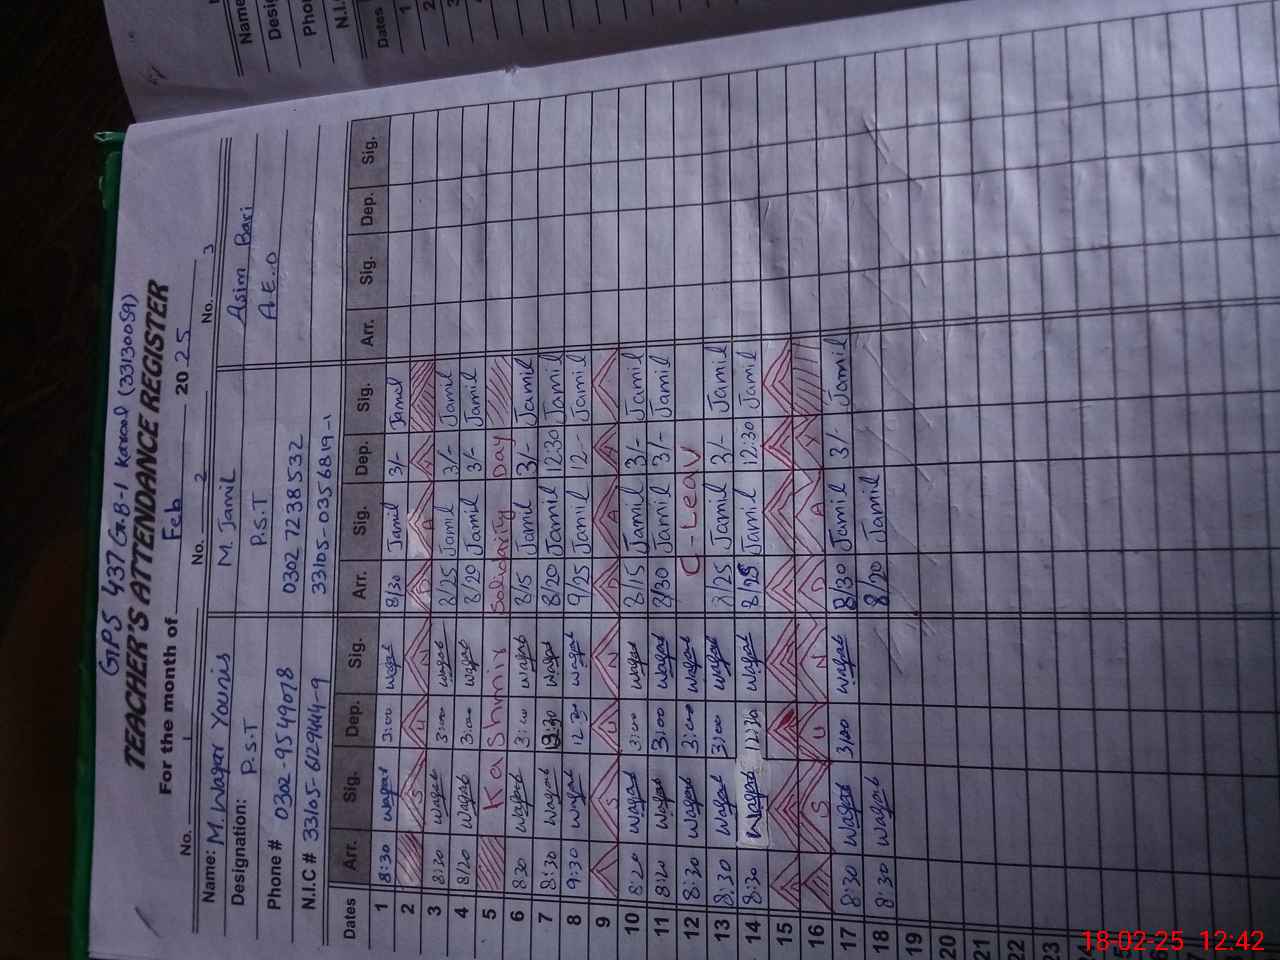 GPS 437 G.B-1 Karcol (33130059)
TEACHER'S ATTENDANCE REGISTER
For the month of Feb 2025
No. 1 No. 2 No. 3
Name: M. Waqar Younis M. Jamil Asim Bari
Designation: P.S.T P.S.T A.E.O
Phone # 0302-9549078 0302 7238532
N.I.C # 33105-0356819-1
Dates Arr. Sig. Dep. Sig. Arr. Sig. Dep. Sig. Arr. Sig. Dep. Sig.
1 8:30 Waqar 3:00 Waqar 8/30 Jamil 3/- Jamil
2 S U N D A Y
3 8:30 Waqar 3:00 Waqar 8/25 Jamil 3/- Jamil
4 8/20 Waqar 3:00 Waqar 8/20 Jamil 3/- Jamil
5 Kashmir Solidarity Day
6 8:30 Waqar 3:00 Waqar 8/5 Jamil 3/- Jamil
7 8:30 Waqar 12:30 Waqar 8/20 Jamil 12:30 Jamil
8 9:30 Waqar 12:30 Waqar 9/25 Jamil 12:- Jamil
9 S U N D A Y
10 8:20 Waqar 3:00 Waqar 8/15 Jamil 3/- Jamil
11 8:20 Waqar 3:00 Waqar 8/30 Jamil 3/- Jamil
12 8:30 Waqar 3:00 Waqar C-Leav
13 8:30 Waqar 3:00 Waqar 8/25 Jamil 3/- Jamil
14 8:30 Waqar 12:30 Waqar 8/25 Jamil 12:30 Jamil
15
16 S U N D A Y
17 8:30 Waqar 3:00 Waqar 8/30 Jamil 3/- Jamil
18 8:30 Waqar 8/20 Jamil
19
20
21
22
23
24
25
26
27
Name
Dates
1
2
18-02-25 12:42